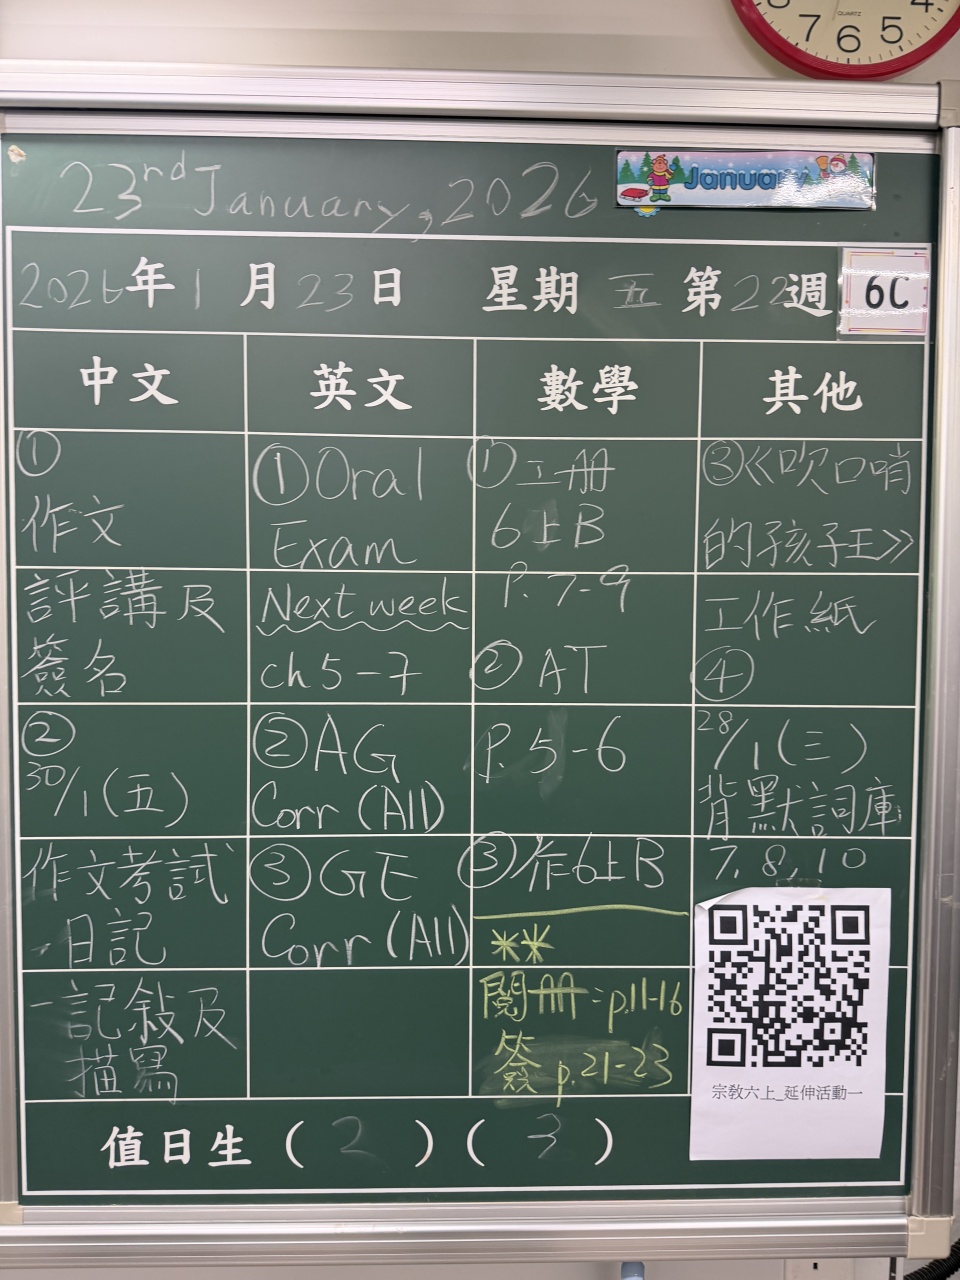 7 6 5 4
QUARTZ
23rd January, 2026
January
2026年1月23日 星期五 第22週
6C
中文
①
作文
評講及
簽名
②
30/1(五)
作文考試
-日記
-記敍及
描寫
英文
①Oral
Exam
Next week
ch5-7
②AG
Corr (All)
③GE
Corr (All)
數學
①工冊
6上B
P.7-9
②AT
P.5-6
③作6上B
**
閱冊:p.11-16
簽 p.21-23
其他
③《吹口哨
的孩子王》
工作紙
④
28/1(三)
背默詞庫
7,8,10
宗教六上_延伸活動一
值日生(2)(3)